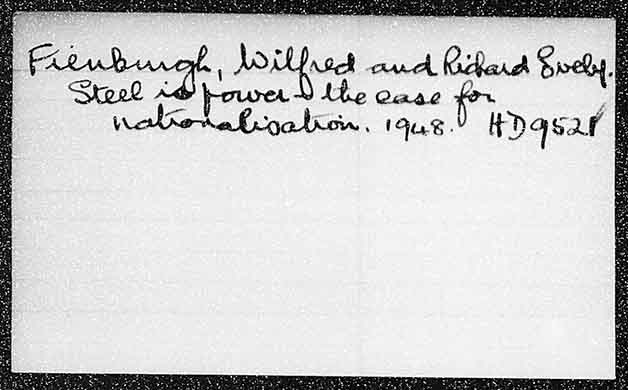 Fienburgh, Wilfred and Richard Evely.
Steel is power - the case for
nationalisation. 1948. HD9521